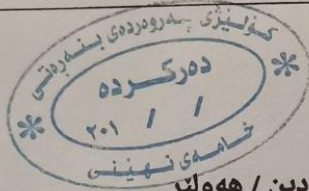 کۆلێژی پەروەردەی بنەڕەتی
دەرکردە
٢٠١ / /
خامەی نهێنی
دین / هەولێر